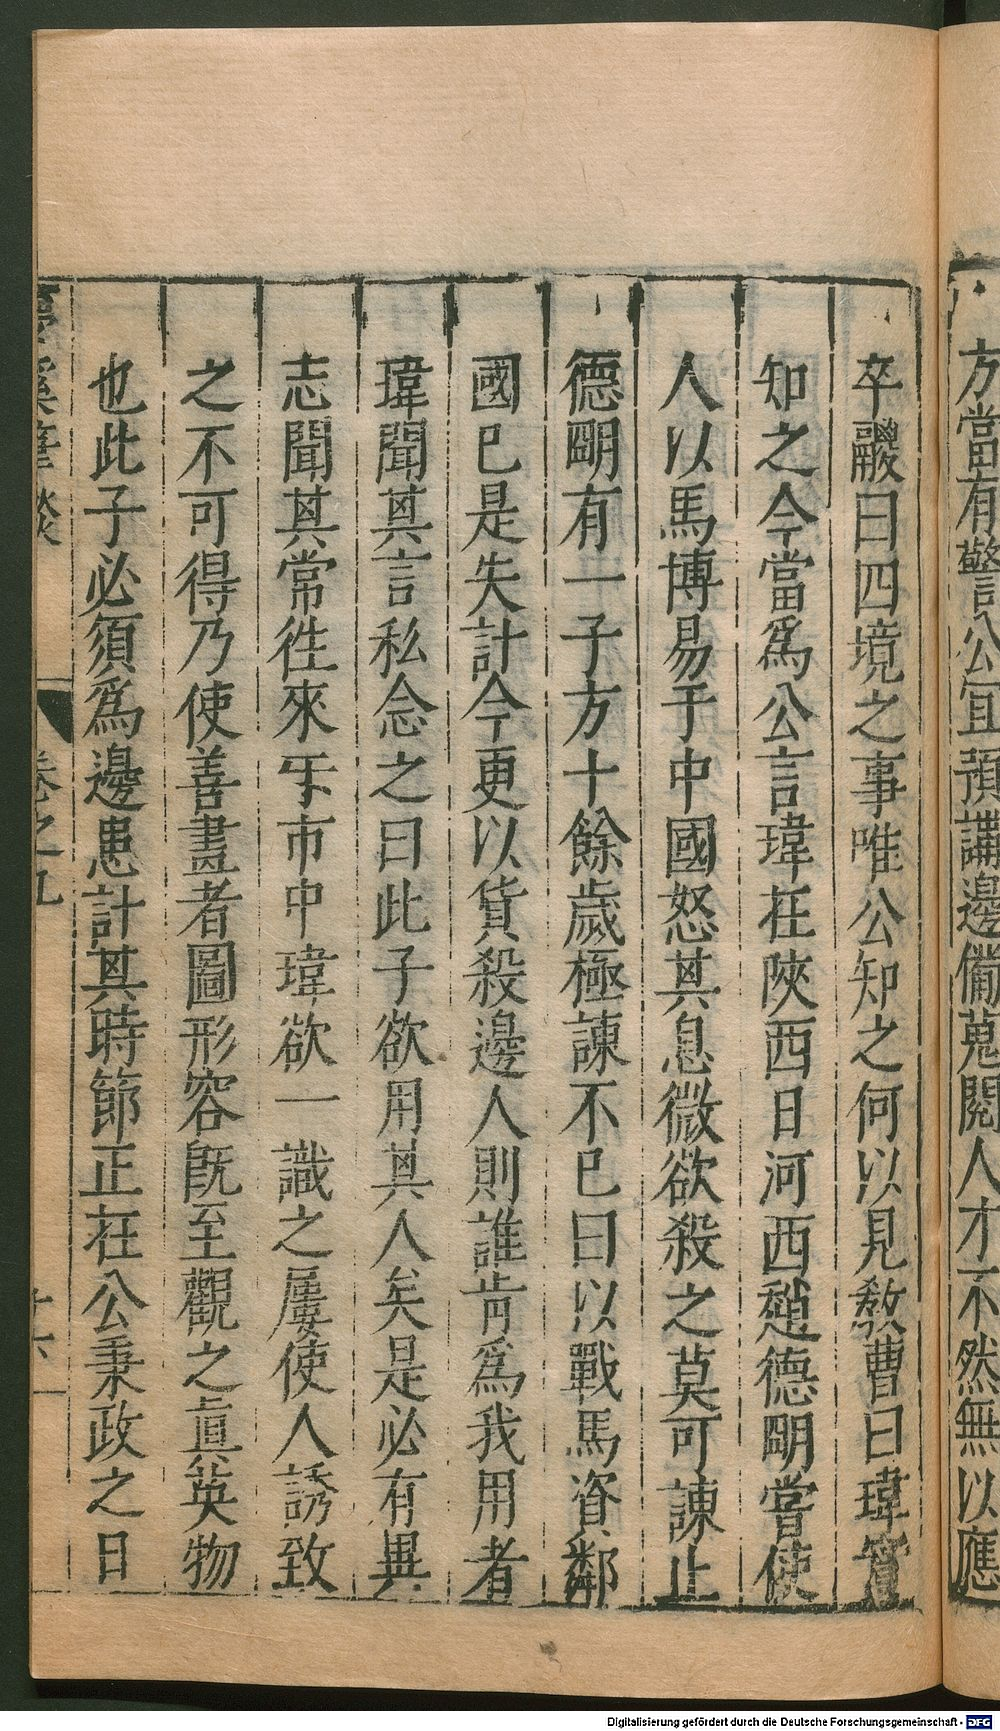 方當有警公宜預講邊備蒐閱人才不然無以應
卒鬷曰四境之事唯公知之何以見敎曹曰瑋實
知之今當爲公言瑋在陝西日河西趙德明嘗使
人以馬博易于中國怒其息微欲殺之莫可諫止
德明有一子方十餘歲極諫不已曰以戰馬資鄰
國已是失計今更以貨殺邊人則誰肯爲我用者
瑋聞其言私念之曰此子欲用其人矣是必有異
志聞其常徃來牙市中瑋欲一識之屢使人誘致
之不可得乃使善畫者圖形容旣至觀之眞英物
也此子必須爲邊患計其時節正在公秉政之日
夢溪筆談
卷之九
Digitalisierung gefördert durch die Deutsche Forschungsgemeinschaft - DFG